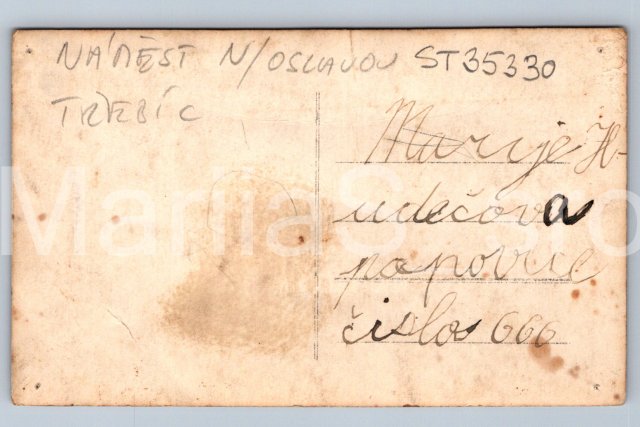 NÁMĚST N/OSLAVOU ST35330
TŘEBÍC
Marije H-
udečova
popovice
čislo 666